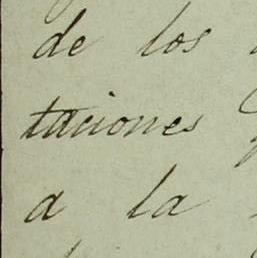 de los
taciones
a la